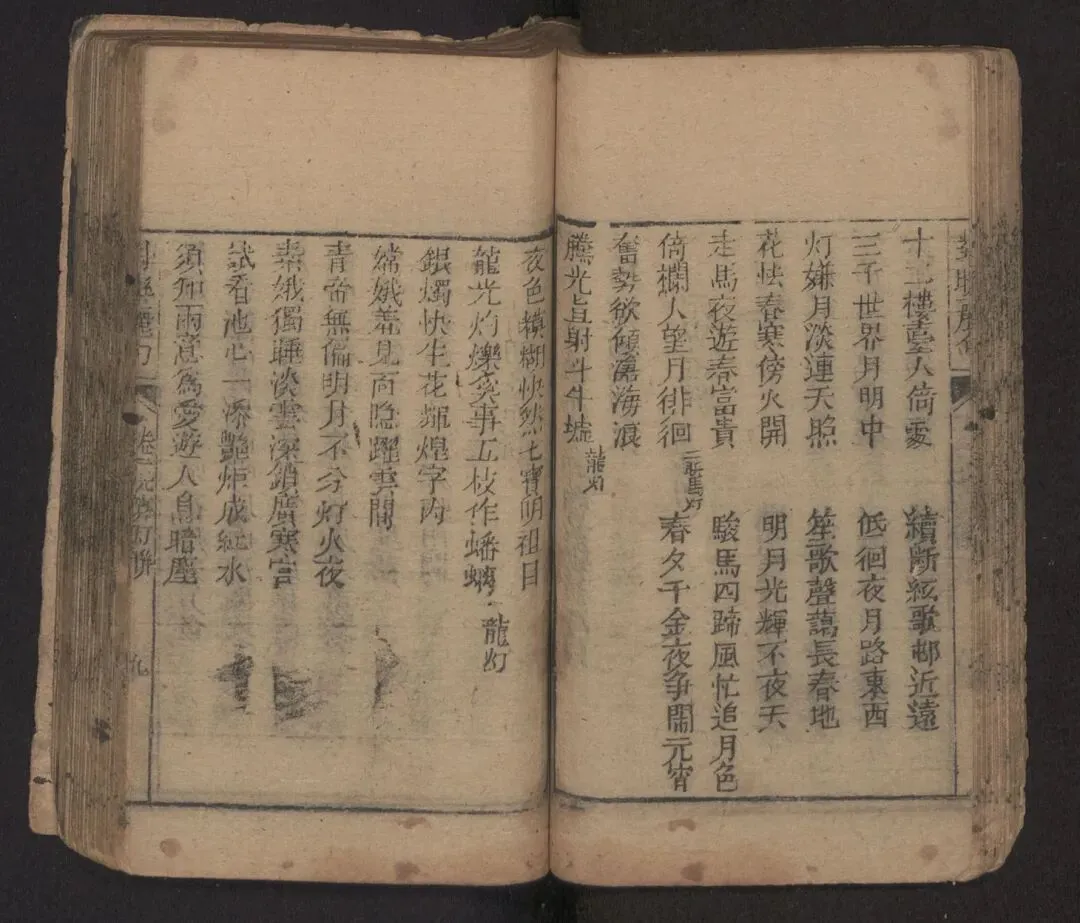 十二樓臺人倚霞
續斷絃歌邨近遠
三千世界月明中
低徊夜月路東西
灯嫌月淡連天照
笙歌聲藹長春地
花怯春寒傍火開
明月光輝不夜天
走馬夜遊春富貴
駿馬四蹄風忙追月色
倚欄人望月徘徊
走馬灯
春夕千金夜爭鬧元宵
奮勢欲傾滄海浪
騰光直射斗牛墟
龍灯
夜色模糊快然七寶明祖日
龍光灼爍奚事五枝作蟠螭
龍灯
銀燭快生花輝煌字內
嫦娥羞見面隐躍雲間
青帝無偏明月不分灯火夜
素娥獨睡淡雲深鎖廣寒宮
試看池心一添艷炬成紅水
須知雨意為愛遊人息暗塵
卷
灯聯
九